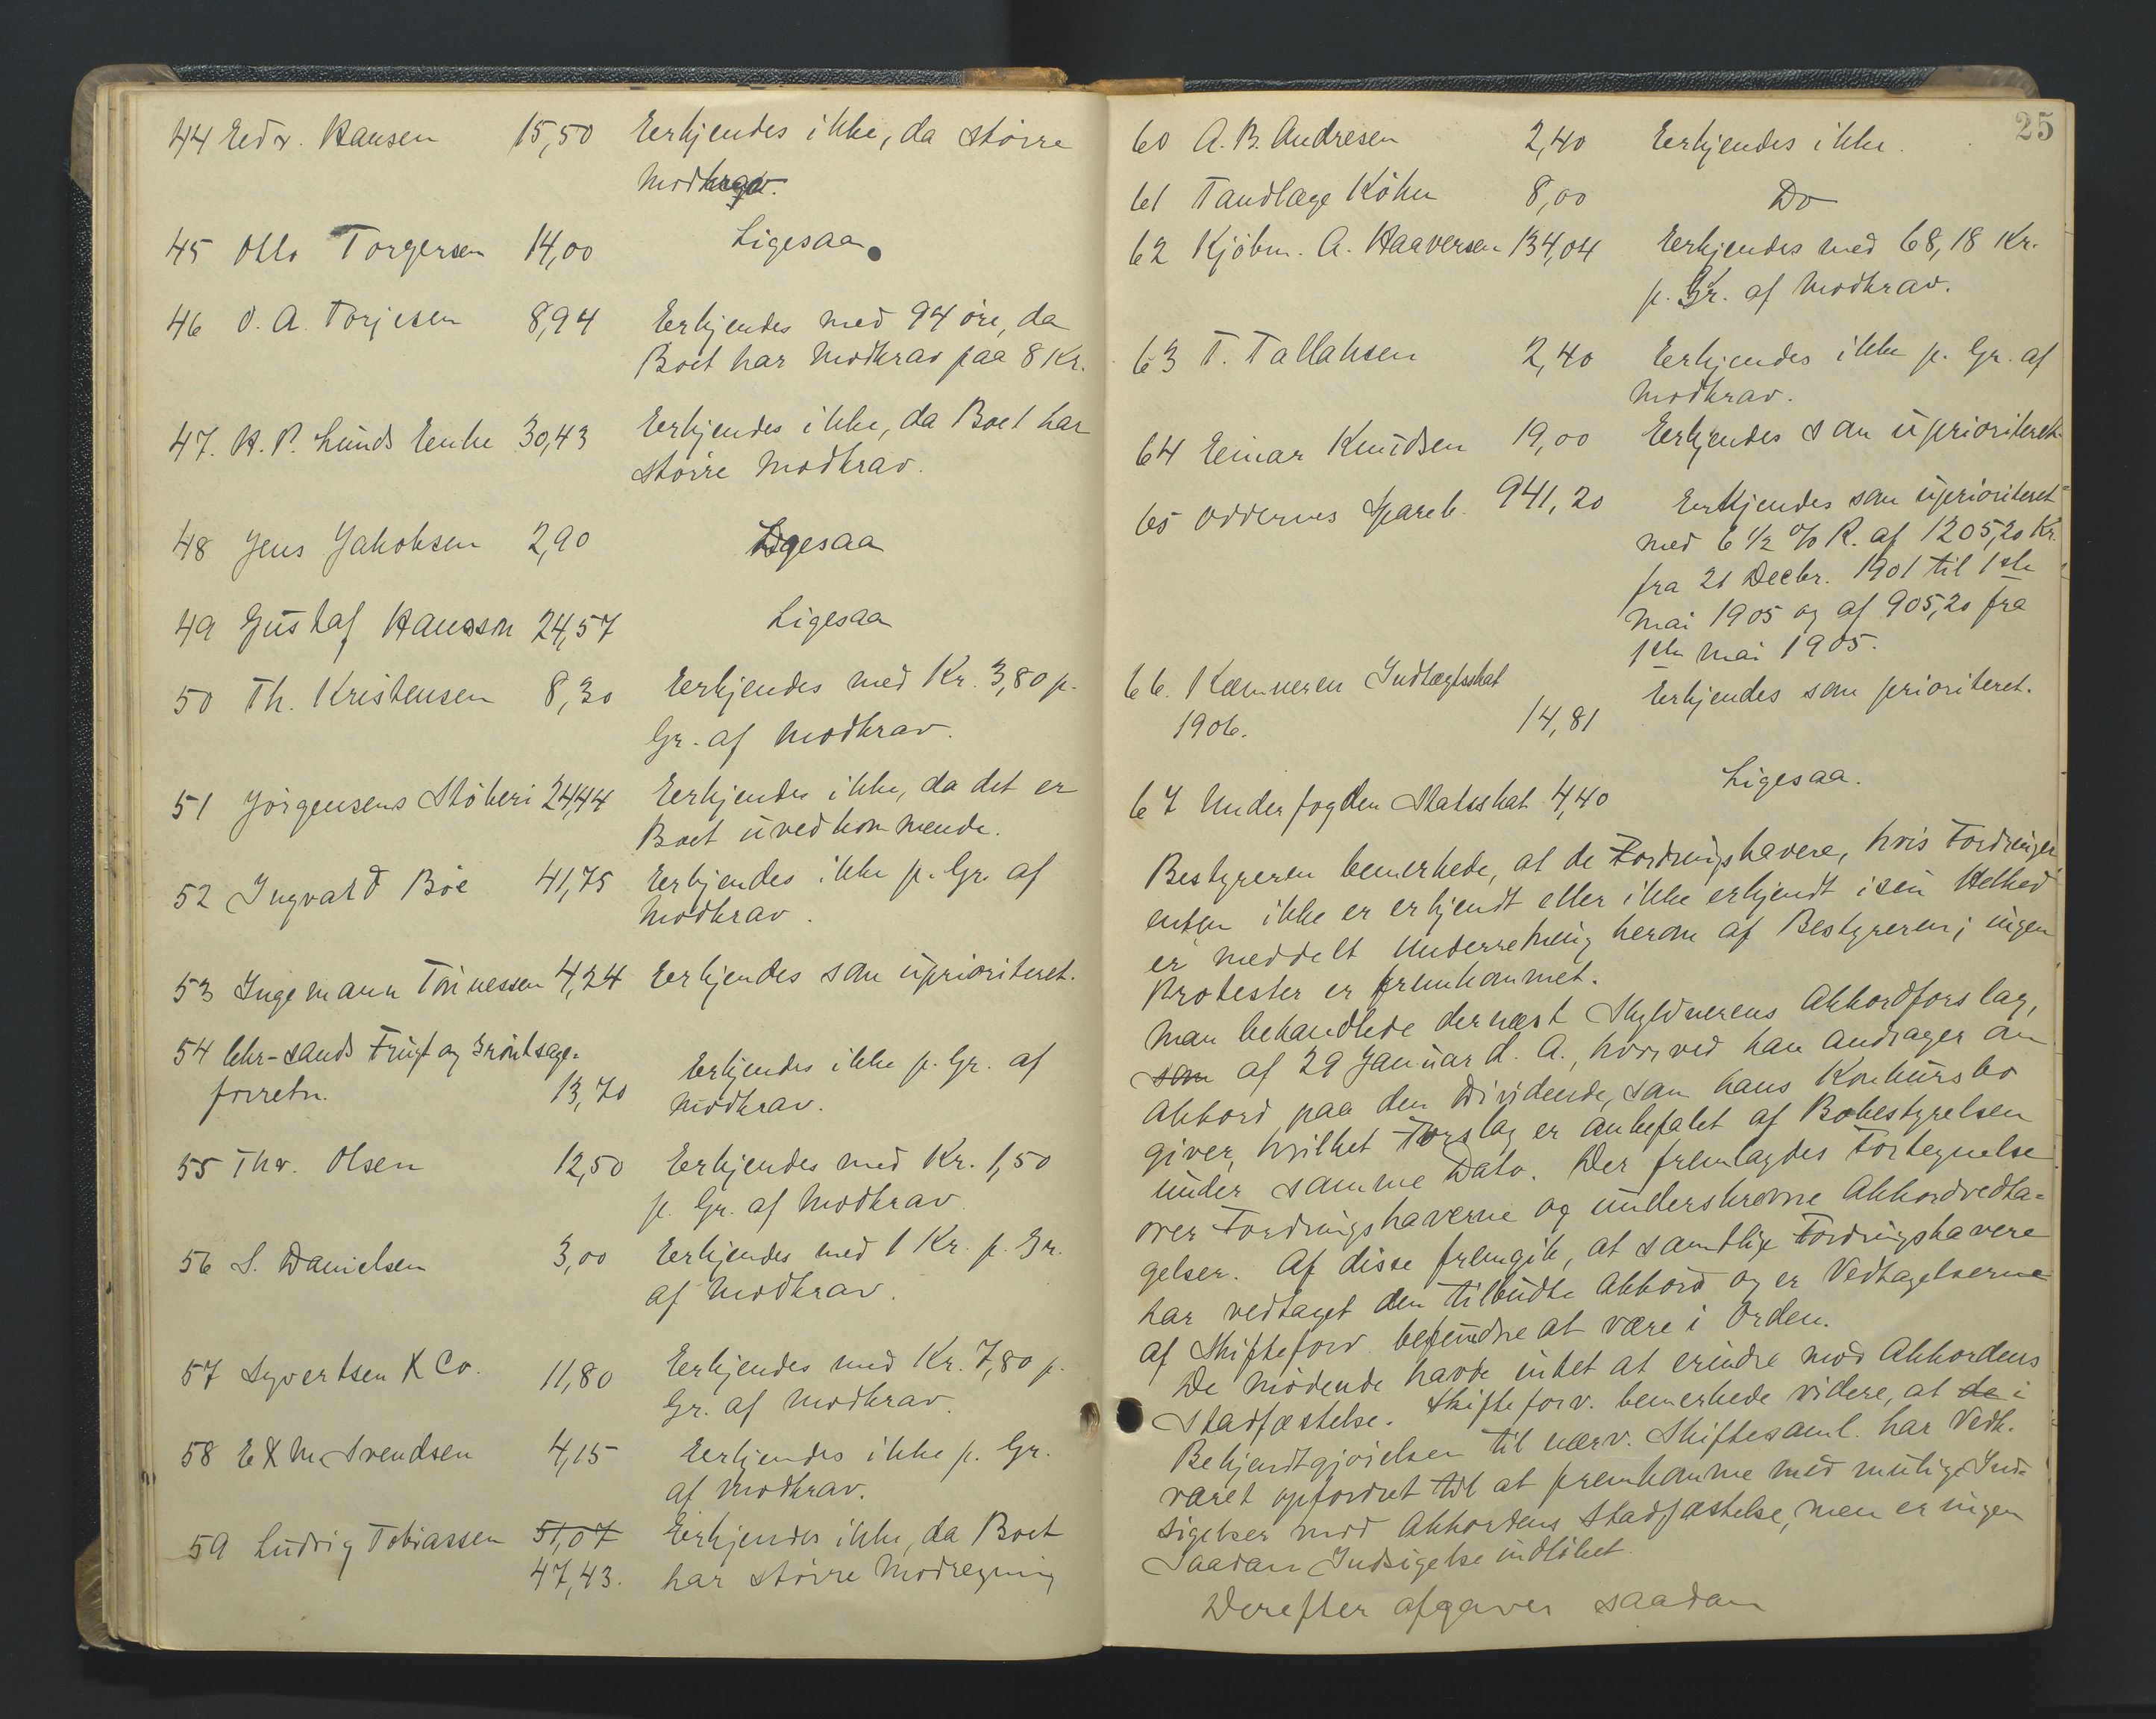 44 Edv. Hansen 15,50 Erkjendes ikke, da större
Modkrav.
45 Otto Torgersen 14,00 Ligesaa
46 O. A. Torjesen 8,94 Erkjendes med 94 öre, da
Boet har Modkrav paa 8 Kr.
47. H. P. Lunds Enke 30,43 Erkjendes ikke, da Boet har
större Modkrav.
48 Jens Jakobsen 2,90 Ligesaa
49 Gustaf Hansson 24,57 Ligesaa
50 Th. Kristensen 8,30 Erkjendes med Kr. 3,80 p.
Gr. af Modkrav.
51 Jörgensens Stöberi 24,44 Erkjendes ikke, da det er
Boet uvedkommende.
52 Ingvald Böe 41,75 Erkjendes ikke p. Gr. af
Modkrav.
53 Ingemann Tönnessen 4,24 Erkjendes som uprioriteret.
54 Chr-sands Frugt og Gröntsags-
forretn. 13,70 Erkjendes ikke p. Gr. af
Modkrav.
55 Thv. Olsen 12,50 Erkjendes med Kr. 1,50
p. Gr. af Modkrav.
56 S. Danielsen 3,00 Erkjendes med 1 Kr. p. Gr.
af Modkrav.
57 Syvertsen & Co. 11,80 Erkjendes med Kr. 7,80 p.
Gr. af Modkrav.
58 E & M Svendsen 4,15 Erkjendes ikke p. Gr.
af Modkrav.
59 Ludvig Tobiassen 51,07 Erkjendes ikke, da Boet
47,43. har större Modregning
25
60 A. B. Andresen 2,40 Erkjendes ikke.
61 Tandlæge Köhn 8,00 Do
62 Kjöbm. A. Haaversen 134,04 Erkjendes med 68,18 Kr.
p. Gr. af Modkrav.
63 T. Tallaksen 2,40 Erkjendes ikke p. Gr. af
Modkrav.
64 Einar Knudsen 19,00 Erkjendes som uprioriteret
65 Oddernes Spareb. 941,20 Erkjendes som uprioriteret
med 6 1/2 % R. af 1205,20 Kr.
fra 21 Decbr. 1901 til 1ste
Mai 1905 og af 905,20 fra
1ste Mai 1905.
66. Kæmneren Indtægtsskat Erkjendes som prioriteret.
1906. 14,81
67 Underfogden Statsskat 4,40 Ligesaa.
Bestyreren bemerkede, at de Fordringshavere, hvis Fordringer
enten ikke er erkjendt eller ikke erkjendt i sin Helhed
er meddelt Underretning herom af Bestyreren; ingen
Protester er fremkommet.
Man behandlede dernæst Skyldnerens Akkordforslag,
som af 29 Januar d. A., hvorved han andrager om
Akkord paa den Dividende, som hans Konkursbo
giver, hvilket Forslag er anbefalet af Bobestyrelsen
under samme Dato. Der fremlagdes Fortegnelse
over Fordringshaverne og underskrevne Akkordvedta-
gelser. Af disse fremgik, at samtlige Fordringshavere
har vedtaget den tilbudte Akkord og er Vedtagelserne
af Skifteforv. befundne at være i Orden.
De mödende havde intet at erindre mod Akkordens
Stadfæstelse. Skifteforv. bemerkede videre, at de i
Bekjendtgjörelsen til nærv. Skiftesaml. har Vedk.
været opfordret til at fremkomme med mulige Ind-
sigelser mod Akkordens Stadfæstelse, men er ingen
Saadan Indsigelse indlöbet.
Derefter afgaves saadan